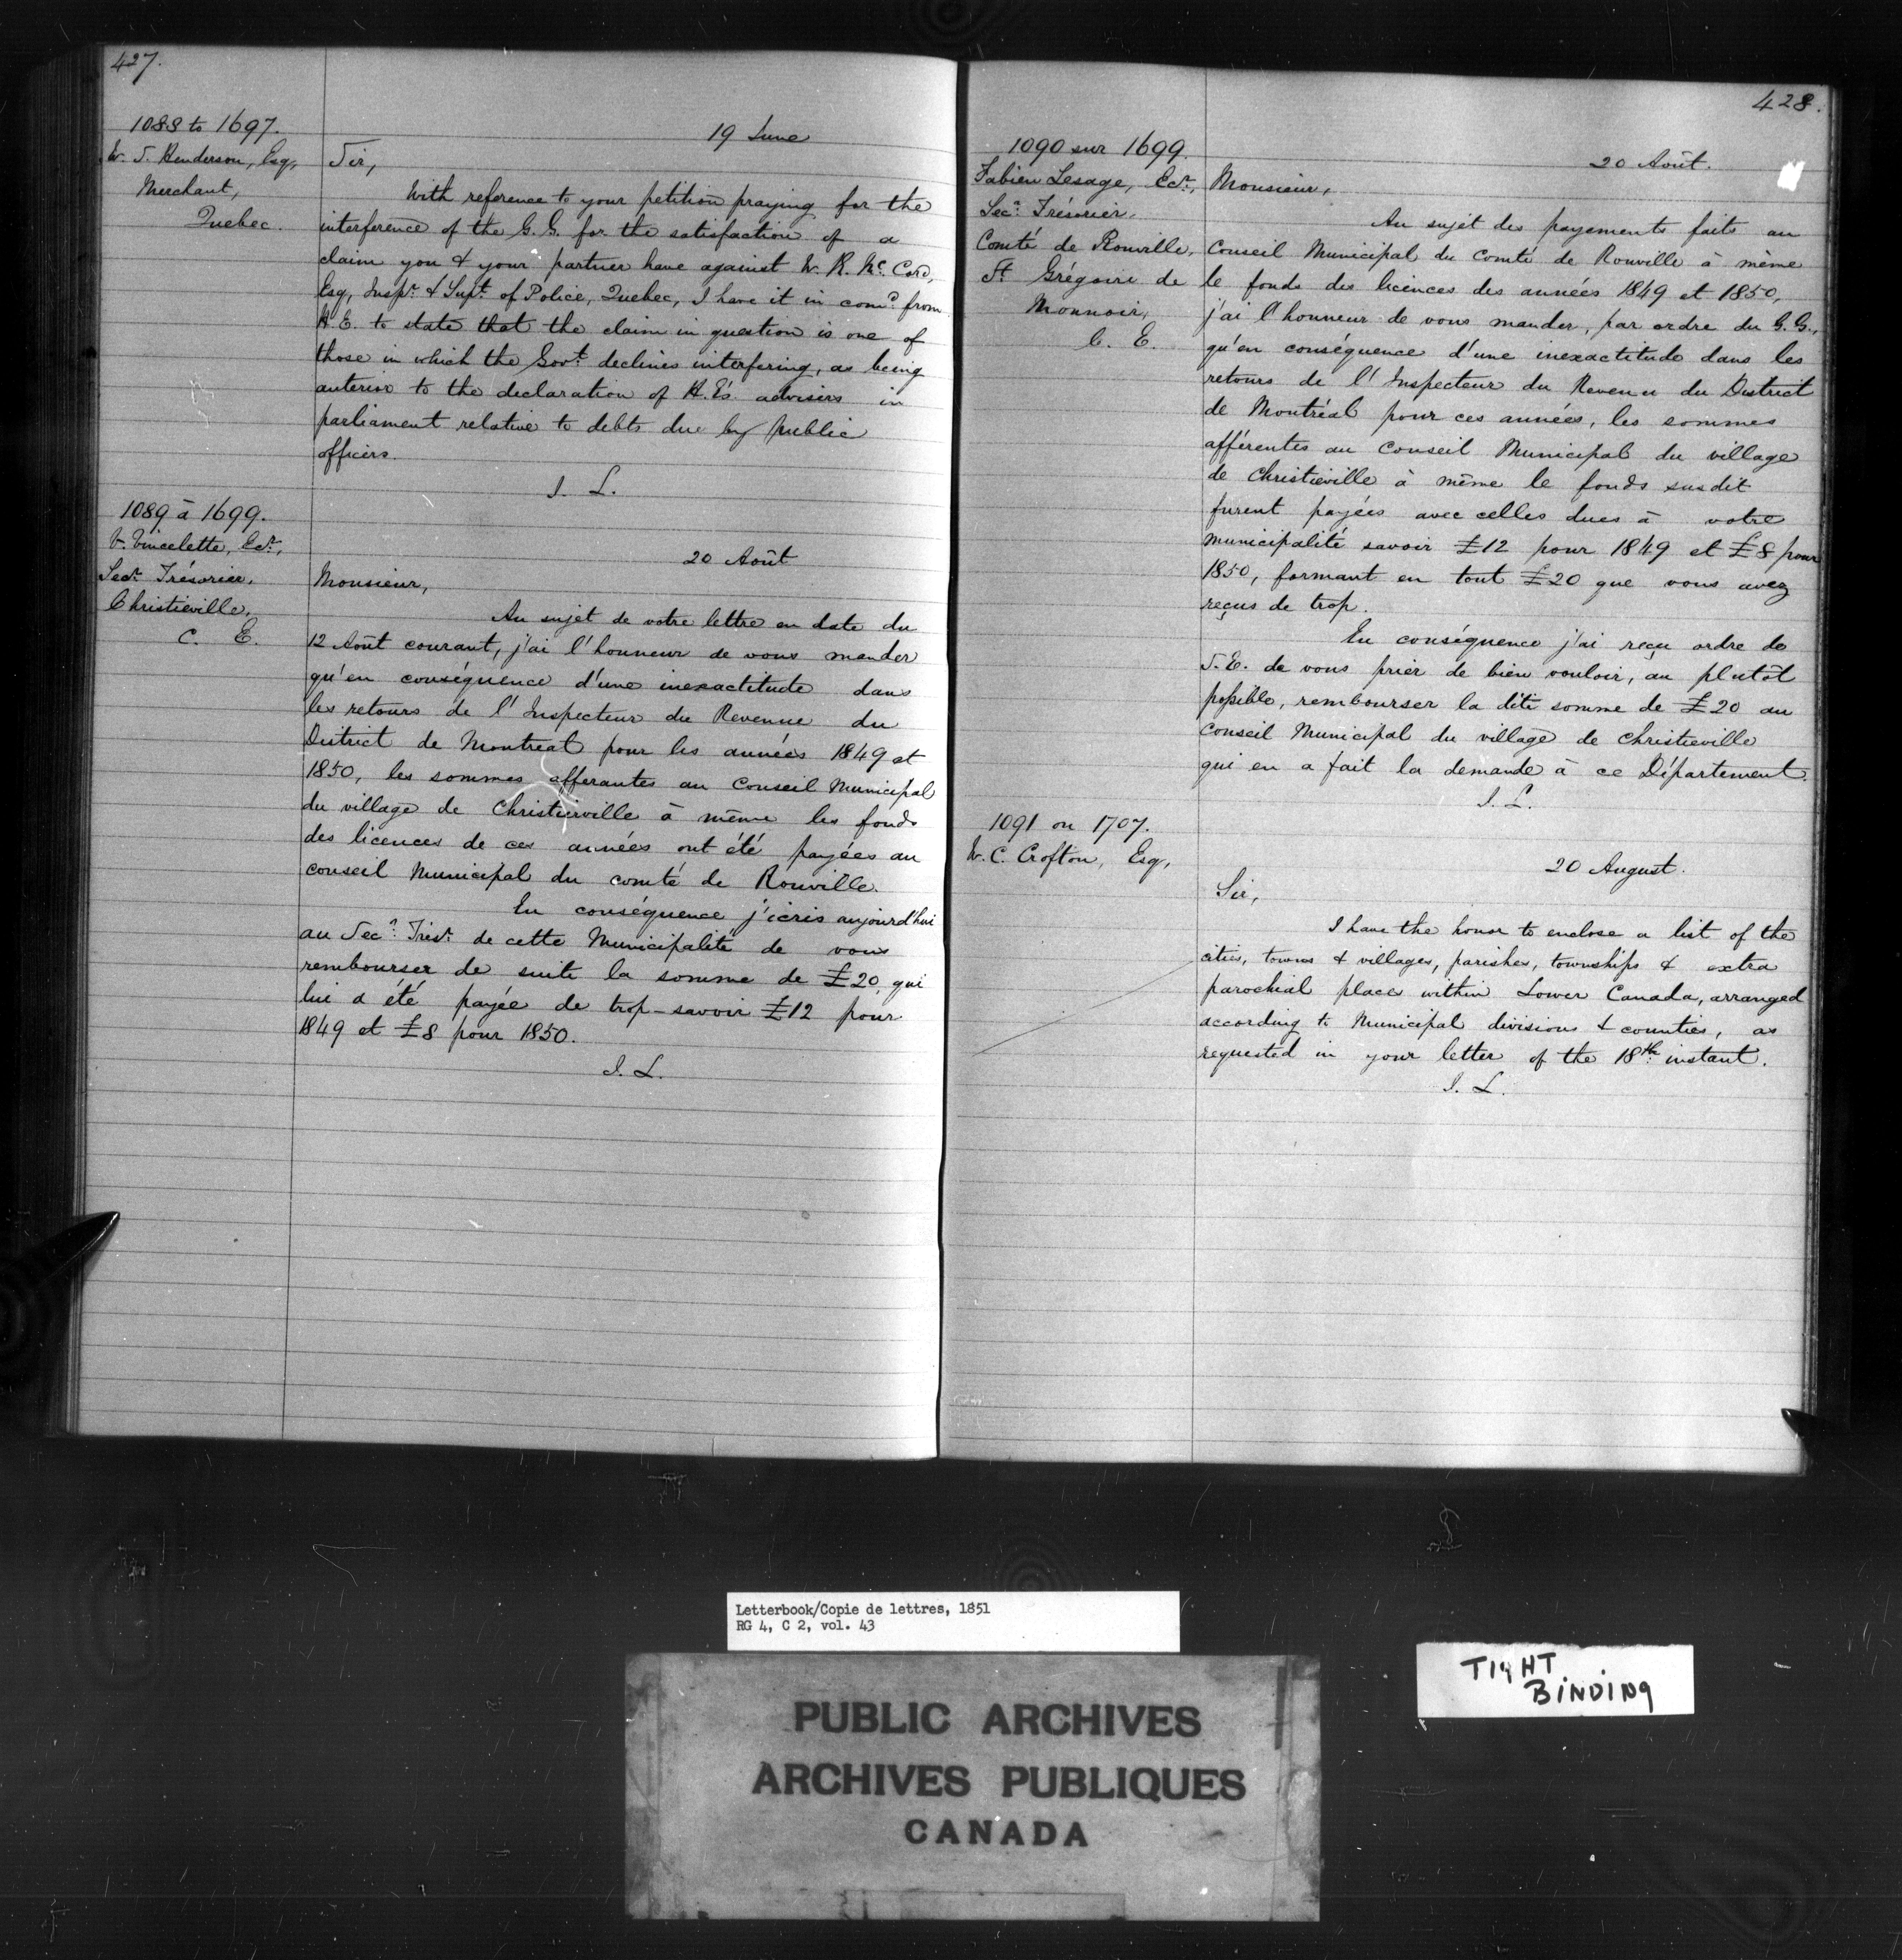 427.
1088 to 1697.
W. S. Henderson, Esq,
Merchant,
Quebec.
19 June
Sir,
With reference to your petition praying for the
interference of the G. G. for the satisfaction of a
claim you & your partner have against W. R. Mc. Cord,
Esq, Inspr. & Supt. of Police, Quebec, I have it in comd. from
H. E. to state that the claim in question is one of
those in which the Govt. declines interfering, as being
anterior to the declaration of H. E's. advisers in
parliament relative to debts due by public
officers.
J. L.
1089 à 1699.
V. Vincelette, Ecr.,
Secr. Trésorier,
Christieville,
C. E.
20 Août
Monsieur,
Au sujet de votre lettre en date du
12 Août courant, j'ai l'honneur de vous mander
qu'en conséquence d'une inexactitude dans
les retours de l'Inspecteur du Revenue du
District de Montreal pour les années 1849 et
1850, les sommes afferantes au Conseil Municipal
du village de Christierville à même les fonds
des licences de ces années ont été payées au
conseil Municipal du comté de Rouville.
En conséquence j'écris aujourd'hui
au Secr. Trésr. de cette Municipalité de vous
rembourser de suite la somme de £20, qui
lui a été payée de trop - savoir £12 pour
1849 et £8 pour 1850.
J. L.
428.
1090 sur 1699.
Fabien Lesage, Ecr.,
Secr. Trésorier,
Comté de Rouville,
St. Grégoire de
Monnoir,
C. E.
20 Août.
Monsieur,
Au sujet des payements faits au
Conseil Municipal du Comté de Rouville à même
le fonds des licences des années 1849 et 1850,
j'ai l'honneur de vous mander, par ordre du G. G.,
qu'en conséquence d'une inexactitude dans les
retours de l'Inspecteur du Revenu du District
de Montréal pour ces années, les sommes
afférentes au Conseil Municipal du village
de Christieville à même le fonds susdit
furent payées avec celles dues à votre
municipalité savoir £12 pour 1849 et £8 pour
1850, formant en tout £20 que vous avez
reçus de trop.
En conséquence j'ai reçu ordre de
S. E. de vous prier de bien vouloir, au plutôt
possible, rembourser la dite somme de £20 au
Conseil Municipal du village de Christieville
qui en a fait la demande à ce Département.
J. L.
1091 on 1707.
W. C. Crofton, Esq,
20 August.
Sir,
I have the honor to enclose a list of the
cities, towns & villages, parishes, townships & extra
parochial places within Lower Canada, arranged
according to Municipal divisions & counties, as
requested in your letter of the 18th. instant.
J. L.
Letterbook/Copie de lettres, 1851
RG 4, C 2, vol. 43
TIGHT
BINDING
PUBLIC ARCHIVES
ARCHIVES PUBLIQUES
CANADA